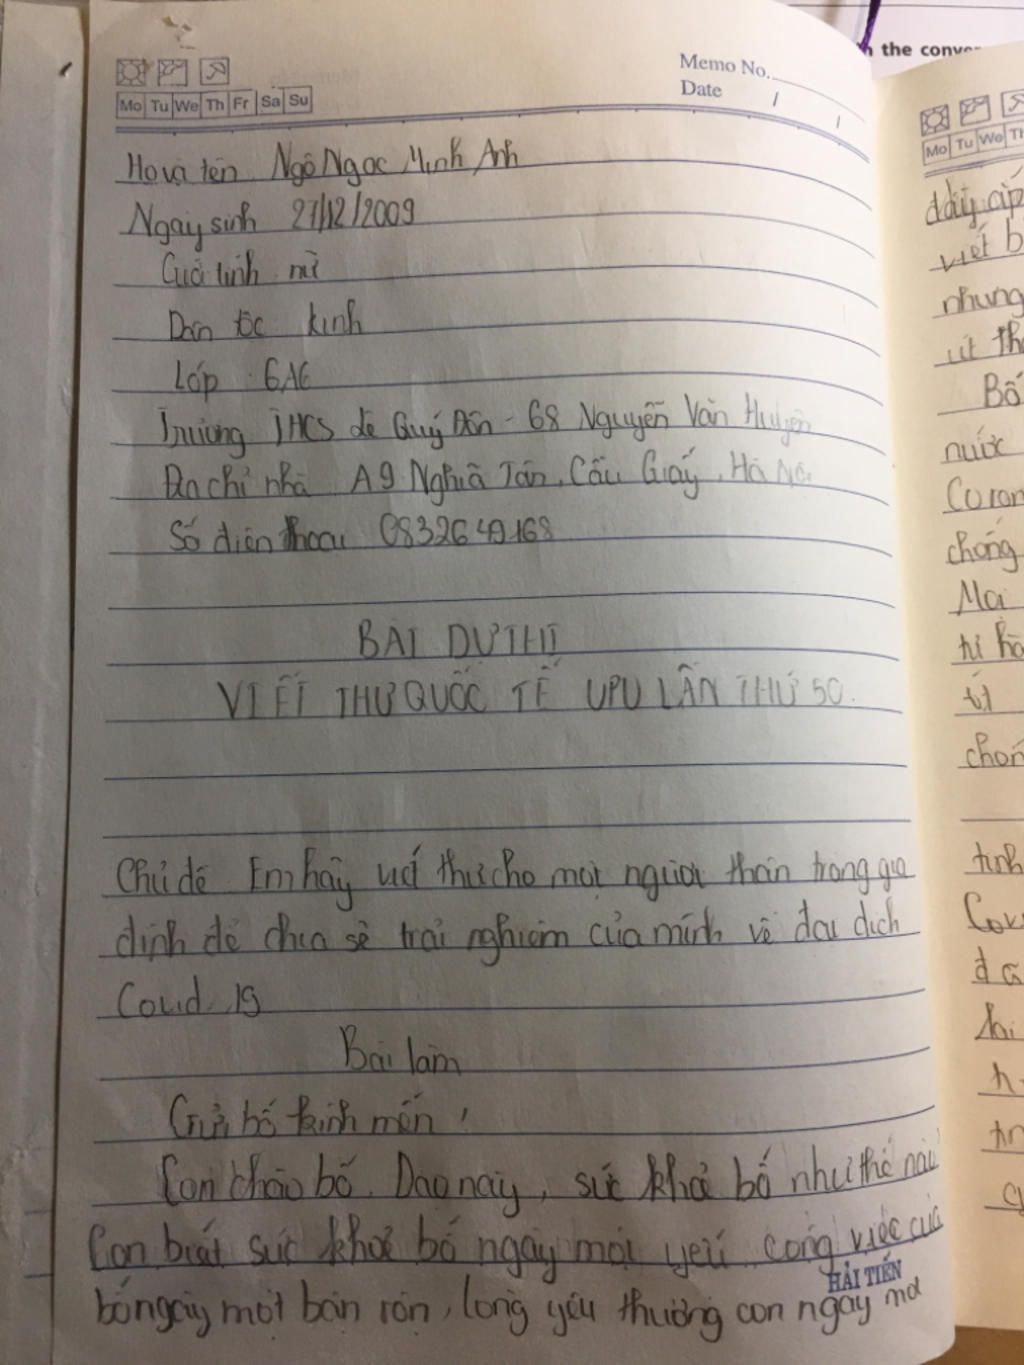 Mo Tu We Th Fr Sa Su
Memo No.
Date / /
Họ và tên Ngô Ngọc Minh Anh
Ngày sinh 27/12/2009
Giới tính nữ
Dân tộc kinh
Lớp 6A6
Trường THCS Lê Quý Đôn - 68 Nguyễn Văn Huyên
Địa chỉ nhà A9 Nghĩa Tân, Cầu Giấy, Hà Nội
Số điện thoại 0832649168
BÀI DỰ THI
VIẾT THƯ QUỐC TẾ UPU LẦN THỨ 50.
Chủ đề Em hãy viết thư cho một người thân trong gia
đình để chia sẻ trải nghiệm của mình về đại dịch
Covid 19
Bài làm
Gửi bố kính mến!
Con chào bố. Dạo này, sức khoẻ bố như thế nào
Con biết sức khoẻ bố ngày một yếu, công việc của
bố ngày một bận rộn, lòng yêu thương con ngày một
HẢI TIẾN
the conve
Mo Tu We Th
dậy cấp
viết b
nhưng
ít th
Bố
nước
Coron
chống
Mọi
chọn
tình
Cov